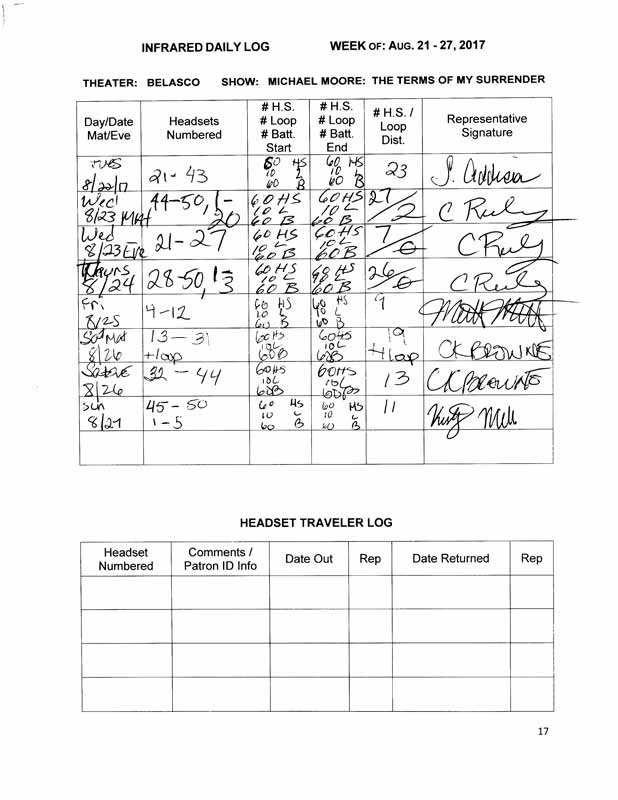 INFRARED DAILY LOG WEEK OF: AUG. 21 - 27, 2017
THEATER: BELASCO SHOW: MICHAEL MOORE: THE TERMS OF MY SURRENDER
Day/Date Mat/Eve
Headsets Numbered
# H.S. # Loop # Batt. Start
# H.S. # Loop # Batt. End
# H.S. / Loop Dist.
Representative Signature
TUES 8/22/17 21-43 60 HS 10 L 60 B 60 HS 10 L 60 B 23 J. Addison
Wed 8/23 Mat 44-50, 1-20 60 HS 10 L 60 B 60 HS 10 L 60 B 27/2 C Ruly
Wed 8/23 Eve 21-27 60 HS 10 L 60 B 60 HS 10 L 60 B 7/0 C Ruly
8/24 28-50, 1-3 60 HS 10 L 60 B 60 HS 10 L 60 B 26/0 C Ruly
Fri 8/25 4-12 60 HS 10 L 60 B 60 HS 10 L 60 B 9
Sat Mat 8/26 13-31 +1 loop 60HS 10L 60B 60HS 10L 60B 19 +1 loop CK BROWNE
Sat Eve 8/26 32-44 60HS 10L 60B 60HS 10L 60B 13 CK BROWNE
Sun 8/27 45-50 1-5 60 HS 10 L 60 B 60 HS 10 L 60 B 11
HEADSET TRAVELER LOG
Headset Numbered
Comments / Patron ID Info
Date Out
Rep
Date Returned
Rep
17